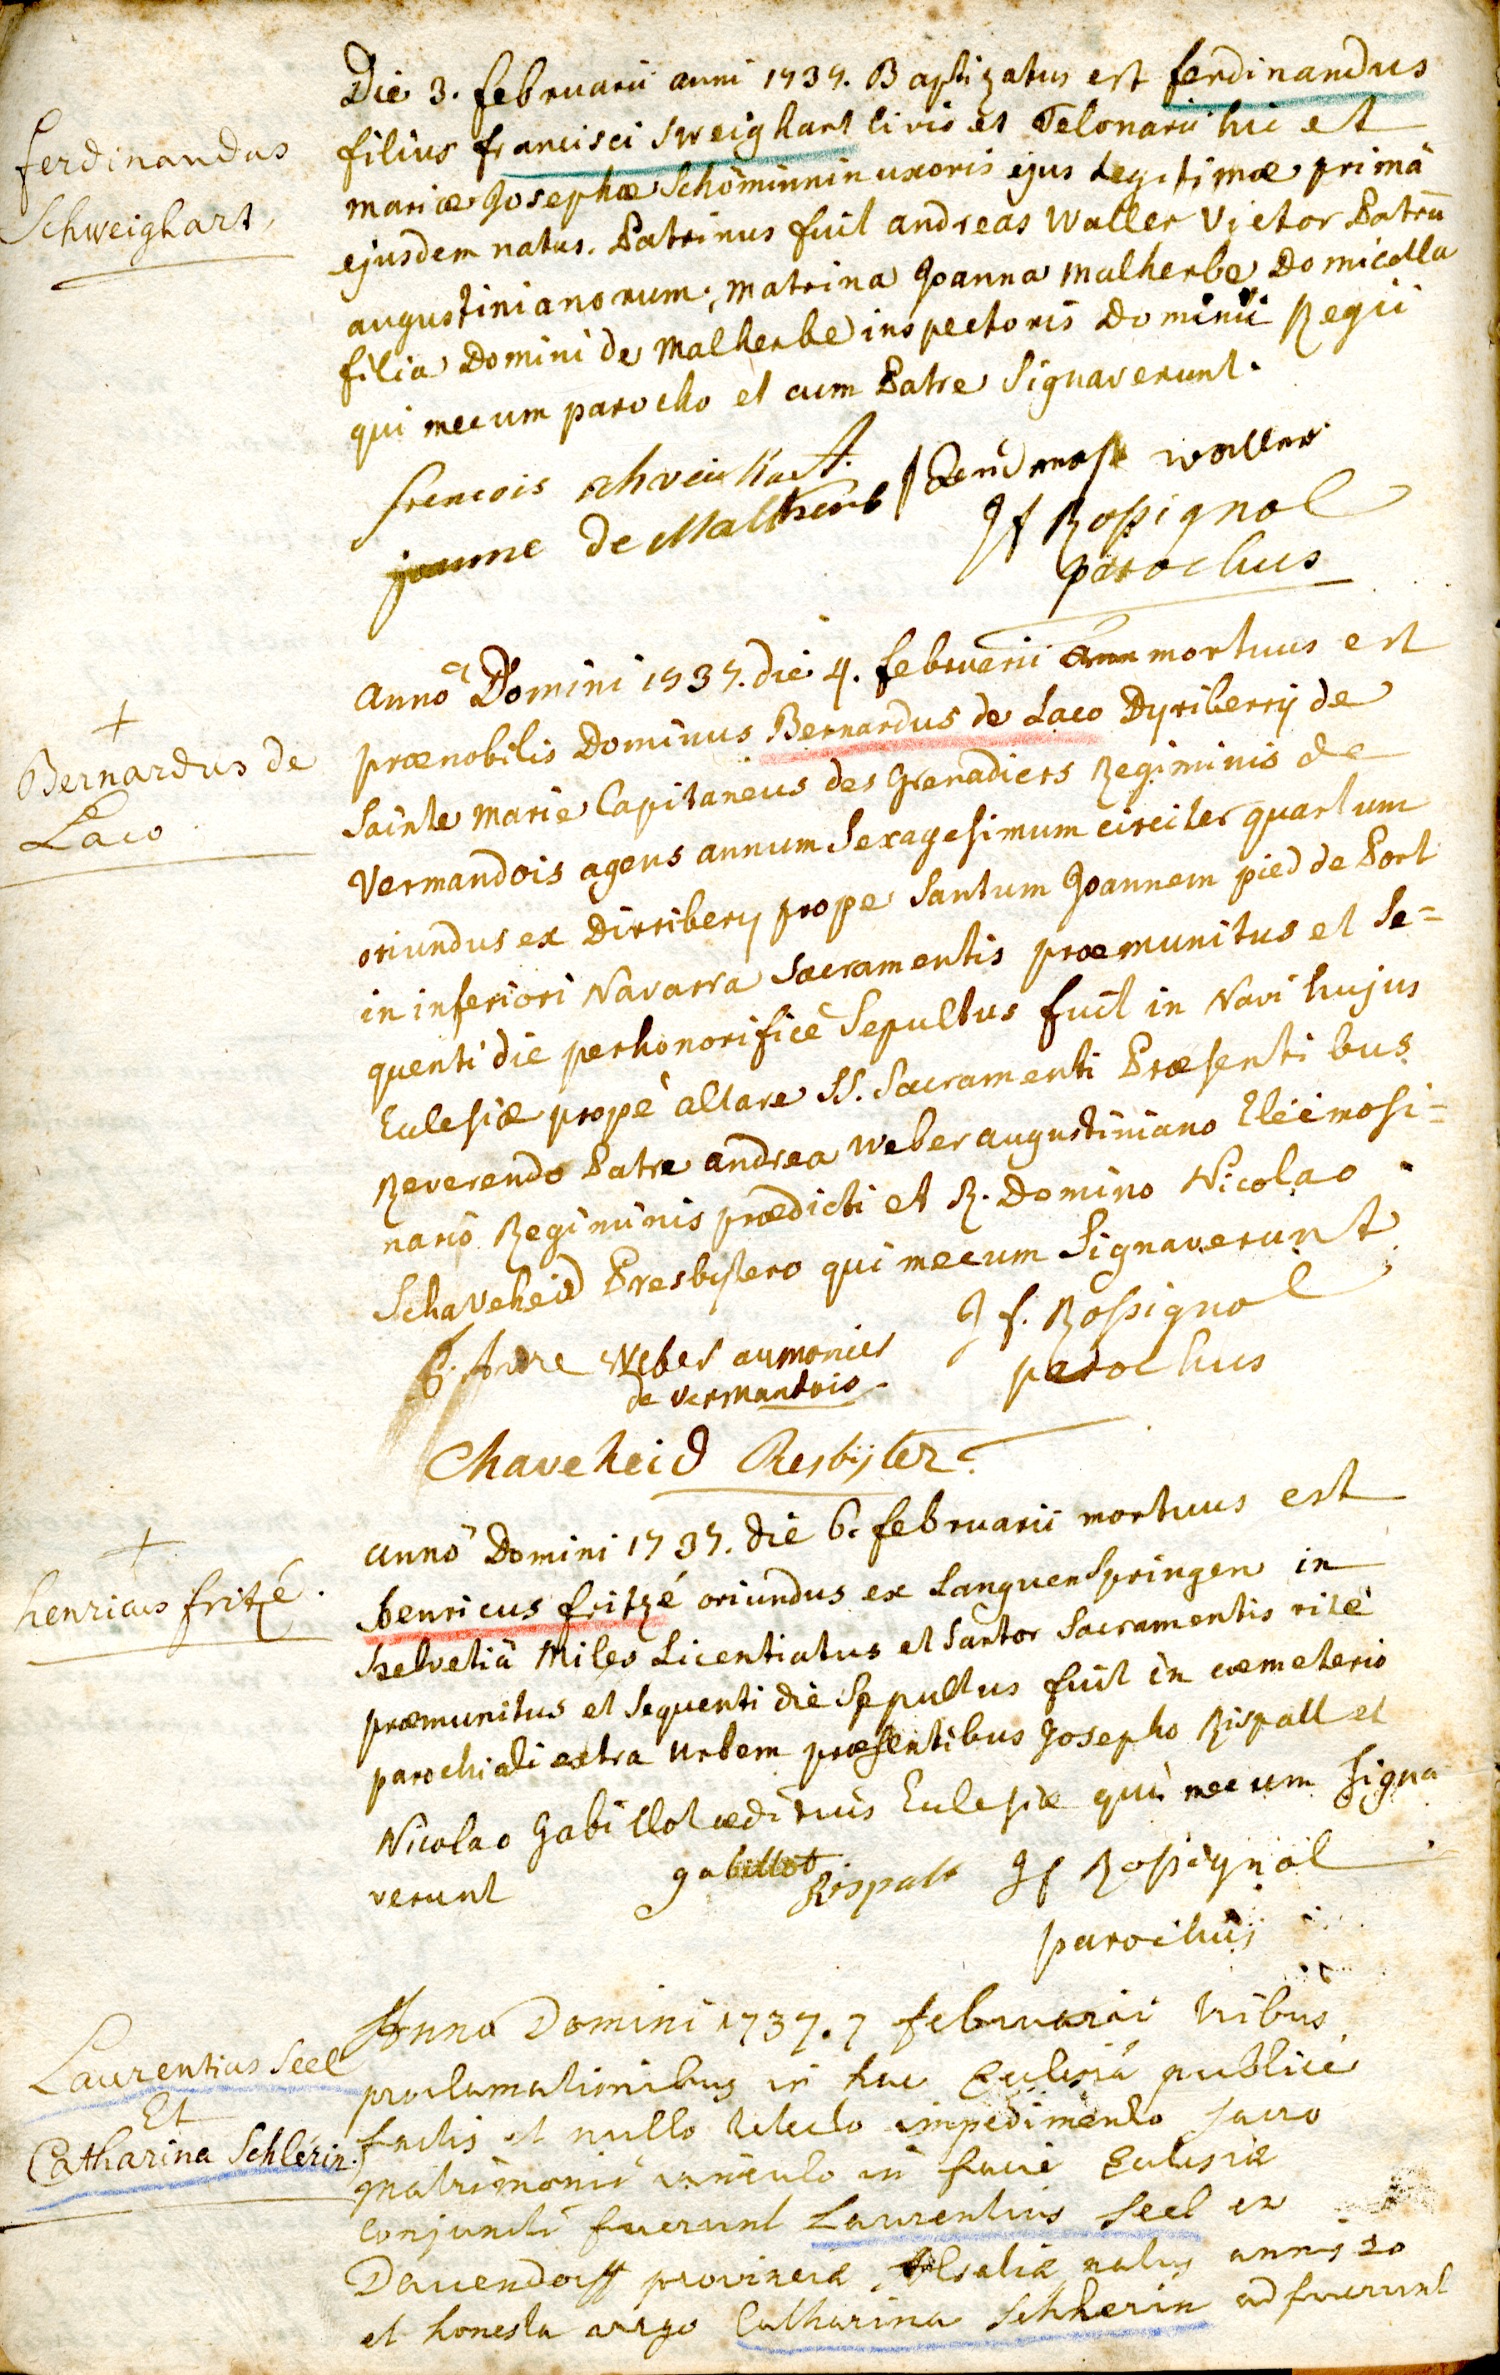 Die 3. februarii anni 1737. Baptizatus est ferdinandus
ferdinandus
Schweighart
filius francisci Sweighart civis et Telonarii hic et
mariæ Josephæ Schöminnin uxoris ejus legitimæ primâ
ejusdem natus. Patrinus fuit andreas Waller Vietor Patrũ
augustinianorum, matrina Joanna malherbe Domicella
filia Domini de Malherbe inspectoris Dominii Regii
qui mecum parocho et cum Patre Signaverunt.
frencois
joanne de Malherb waller
Jf Rossignol
parochus
+
Bernardus de
Laco
anno Domini 1737. die 4. februarii mortuus est
prænobilis Dominus Bernardus de Laco Dyriberrij de
Sainte Marie Capitaneus des Grenadiers Regiminis de
Vermandois agens annum Sexagesimum circiter quartum
oriundus ex Dirribery prope Santum Joannem pied de Port
in inferiori Navarra Sacramentis præmunitus et Se=
quenti die perhonorificè Sepultus fuit in Navi hujus
Eclesiæ propè altare SS. Sacramenti Præsentibus
Reverendo Patre andrea weber augustiniano Eleimosi=
nario Regiminis prædicti et R. Domino Nicolao
Schaveheid Presbytero qui mecum Signaverunt
P. Andre Weber aumonier
de vermantois
J f. Rossignol
parochus
Chaveheid Presbyter
+
henricus fritzé
anno Domini 1737. die 6. februarii mortuus est
henricus fritzé oriundus ex Languenspringen in
Helvetiâ Miles Licentiatus et Sartor Sacramentis ritè
præmunitus et sequenti die Sepultus fuit in cæmeterio
parochiali extra urbem præsentibus Josepho Rispall et
Nicolao Gabillot ædituis Eclesiæ qui mecum signa
verunt
gabillot Rispalt Jf Rossignol
parochus
Laurentius Seel
Et
Catharina Schlérin
Anno Domini 1737. 7 februarii tribus
proclamationibus in hac Eclesiâ publicè
factis et nullo detecto impedimento sacro
matrimonii vinculo in facie Eclesiæ
Conjuncti fuerunt Laurentius Seel ex
Dauendorff provinciæ Alsatiæ natus annis 20
et honesta virgo Catharina Schlerin adfuerunt